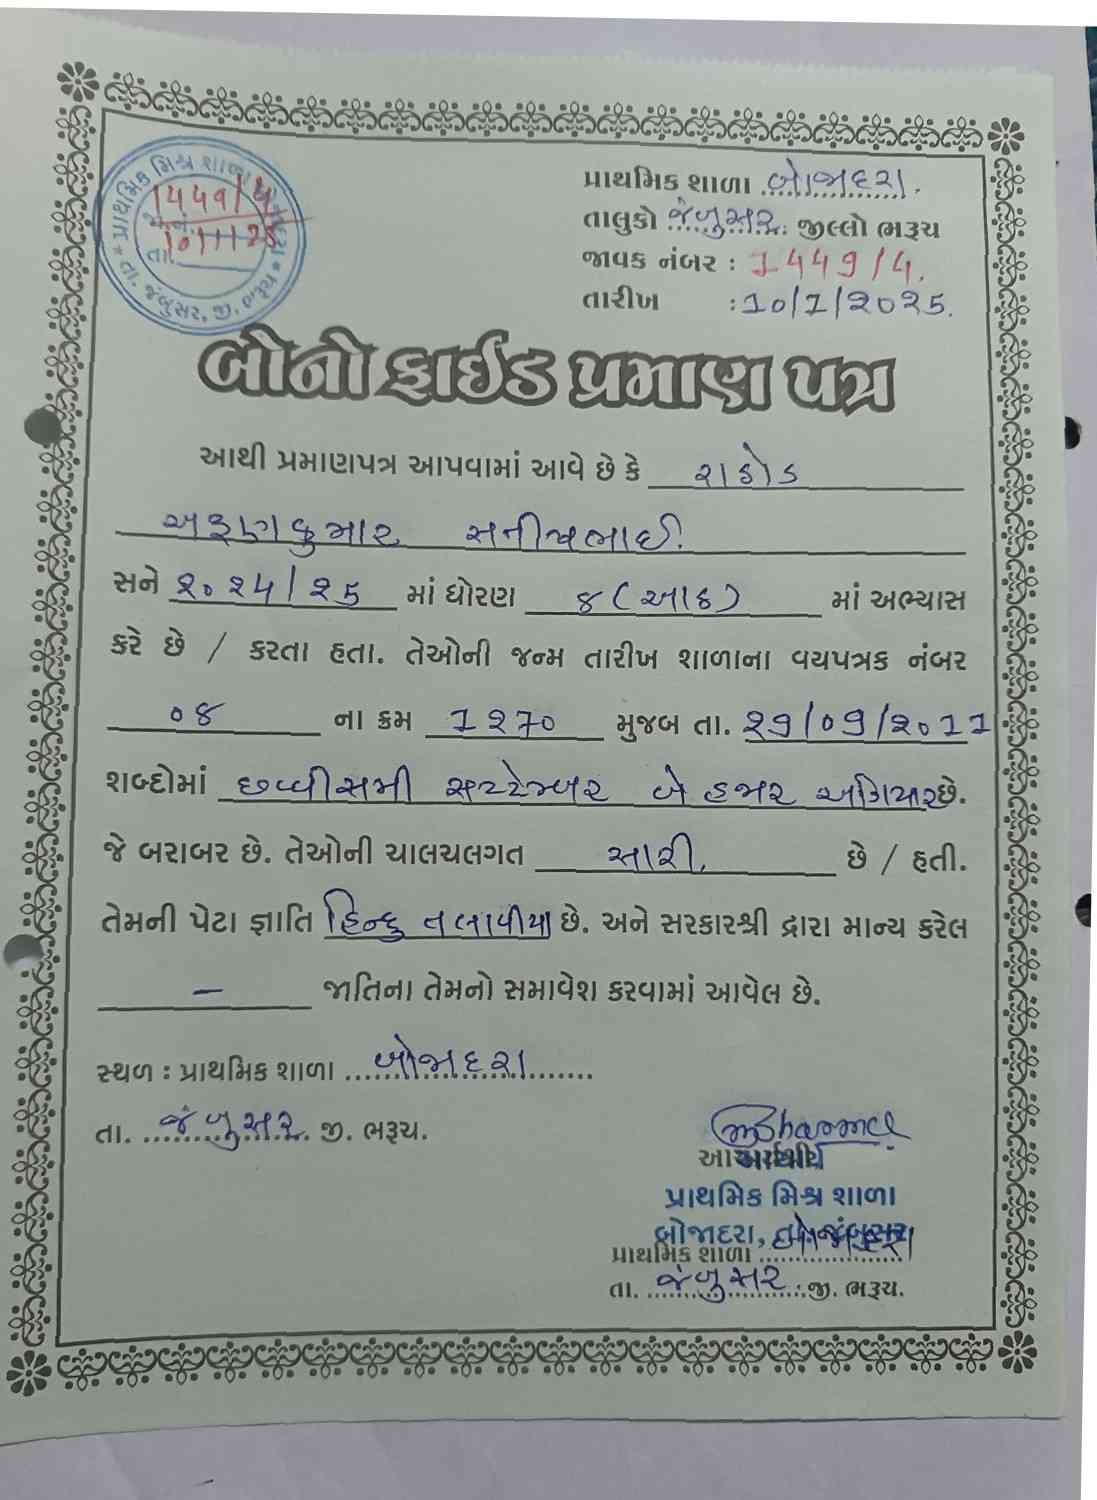 પ્રાથમિક મિશ્ર શાળા
જા.નં. 1449/4
તા. 10/1/25
તા. જંબુસર, જી. ભરૂચ
પ્રાથમિક શાળા બોજાદરા.
તાલુકો જંબુસર જીલ્લો ભરૂચ
જાવક નંબર : 1449/4.
તારીખ : 10/1/2025.
બોનોફાઈડ પ્રમાણ પત્ર
આથી પ્રમાણપત્ર આપવામાં આવે છે કે રાઠોડ
અરૂણકુમાર સતીષભાઈ.
સને ૨૦૨૪/૨૫ માં ધોરણ ૮ (આઠ) માં અભ્યાસ
કરે છે / કરતા હતા. તેઓની જન્મ તારીખ શાળાના વયપત્રક નંબર
૦૪ ના ક્રમ ૧૨૭૦ મુજબ તા. ૨૬/૦૯/૨૦૧૧
શબ્દોમાં છવ્વીસમી સપ્ટેમ્બર બે હજાર અગિયાર છે.
જે બરાબર છે. તેઓની ચાલચલગત સારી. છે / હતી.
તેમની પેટા જ્ઞાતિ હિન્દુ તલાવીયા છે. અને સરકારશ્રી દ્વારા માન્ય કરેલ
— જાતિના તેમનો સમાવેશ કરવામાં આવેલ છે.
સ્થળ : પ્રાથમિક શાળા બોજાદરા
તા. જંબુસર જી. ભરૂચ.
આચાર્યશ્રી
પ્રાથમિક મિશ્ર શાળા
બોજાદરા, તા. જંબુસર
પ્રાથમિક શાળા બોજાદરા
તા. જંબુસર જી. ભરૂચ.